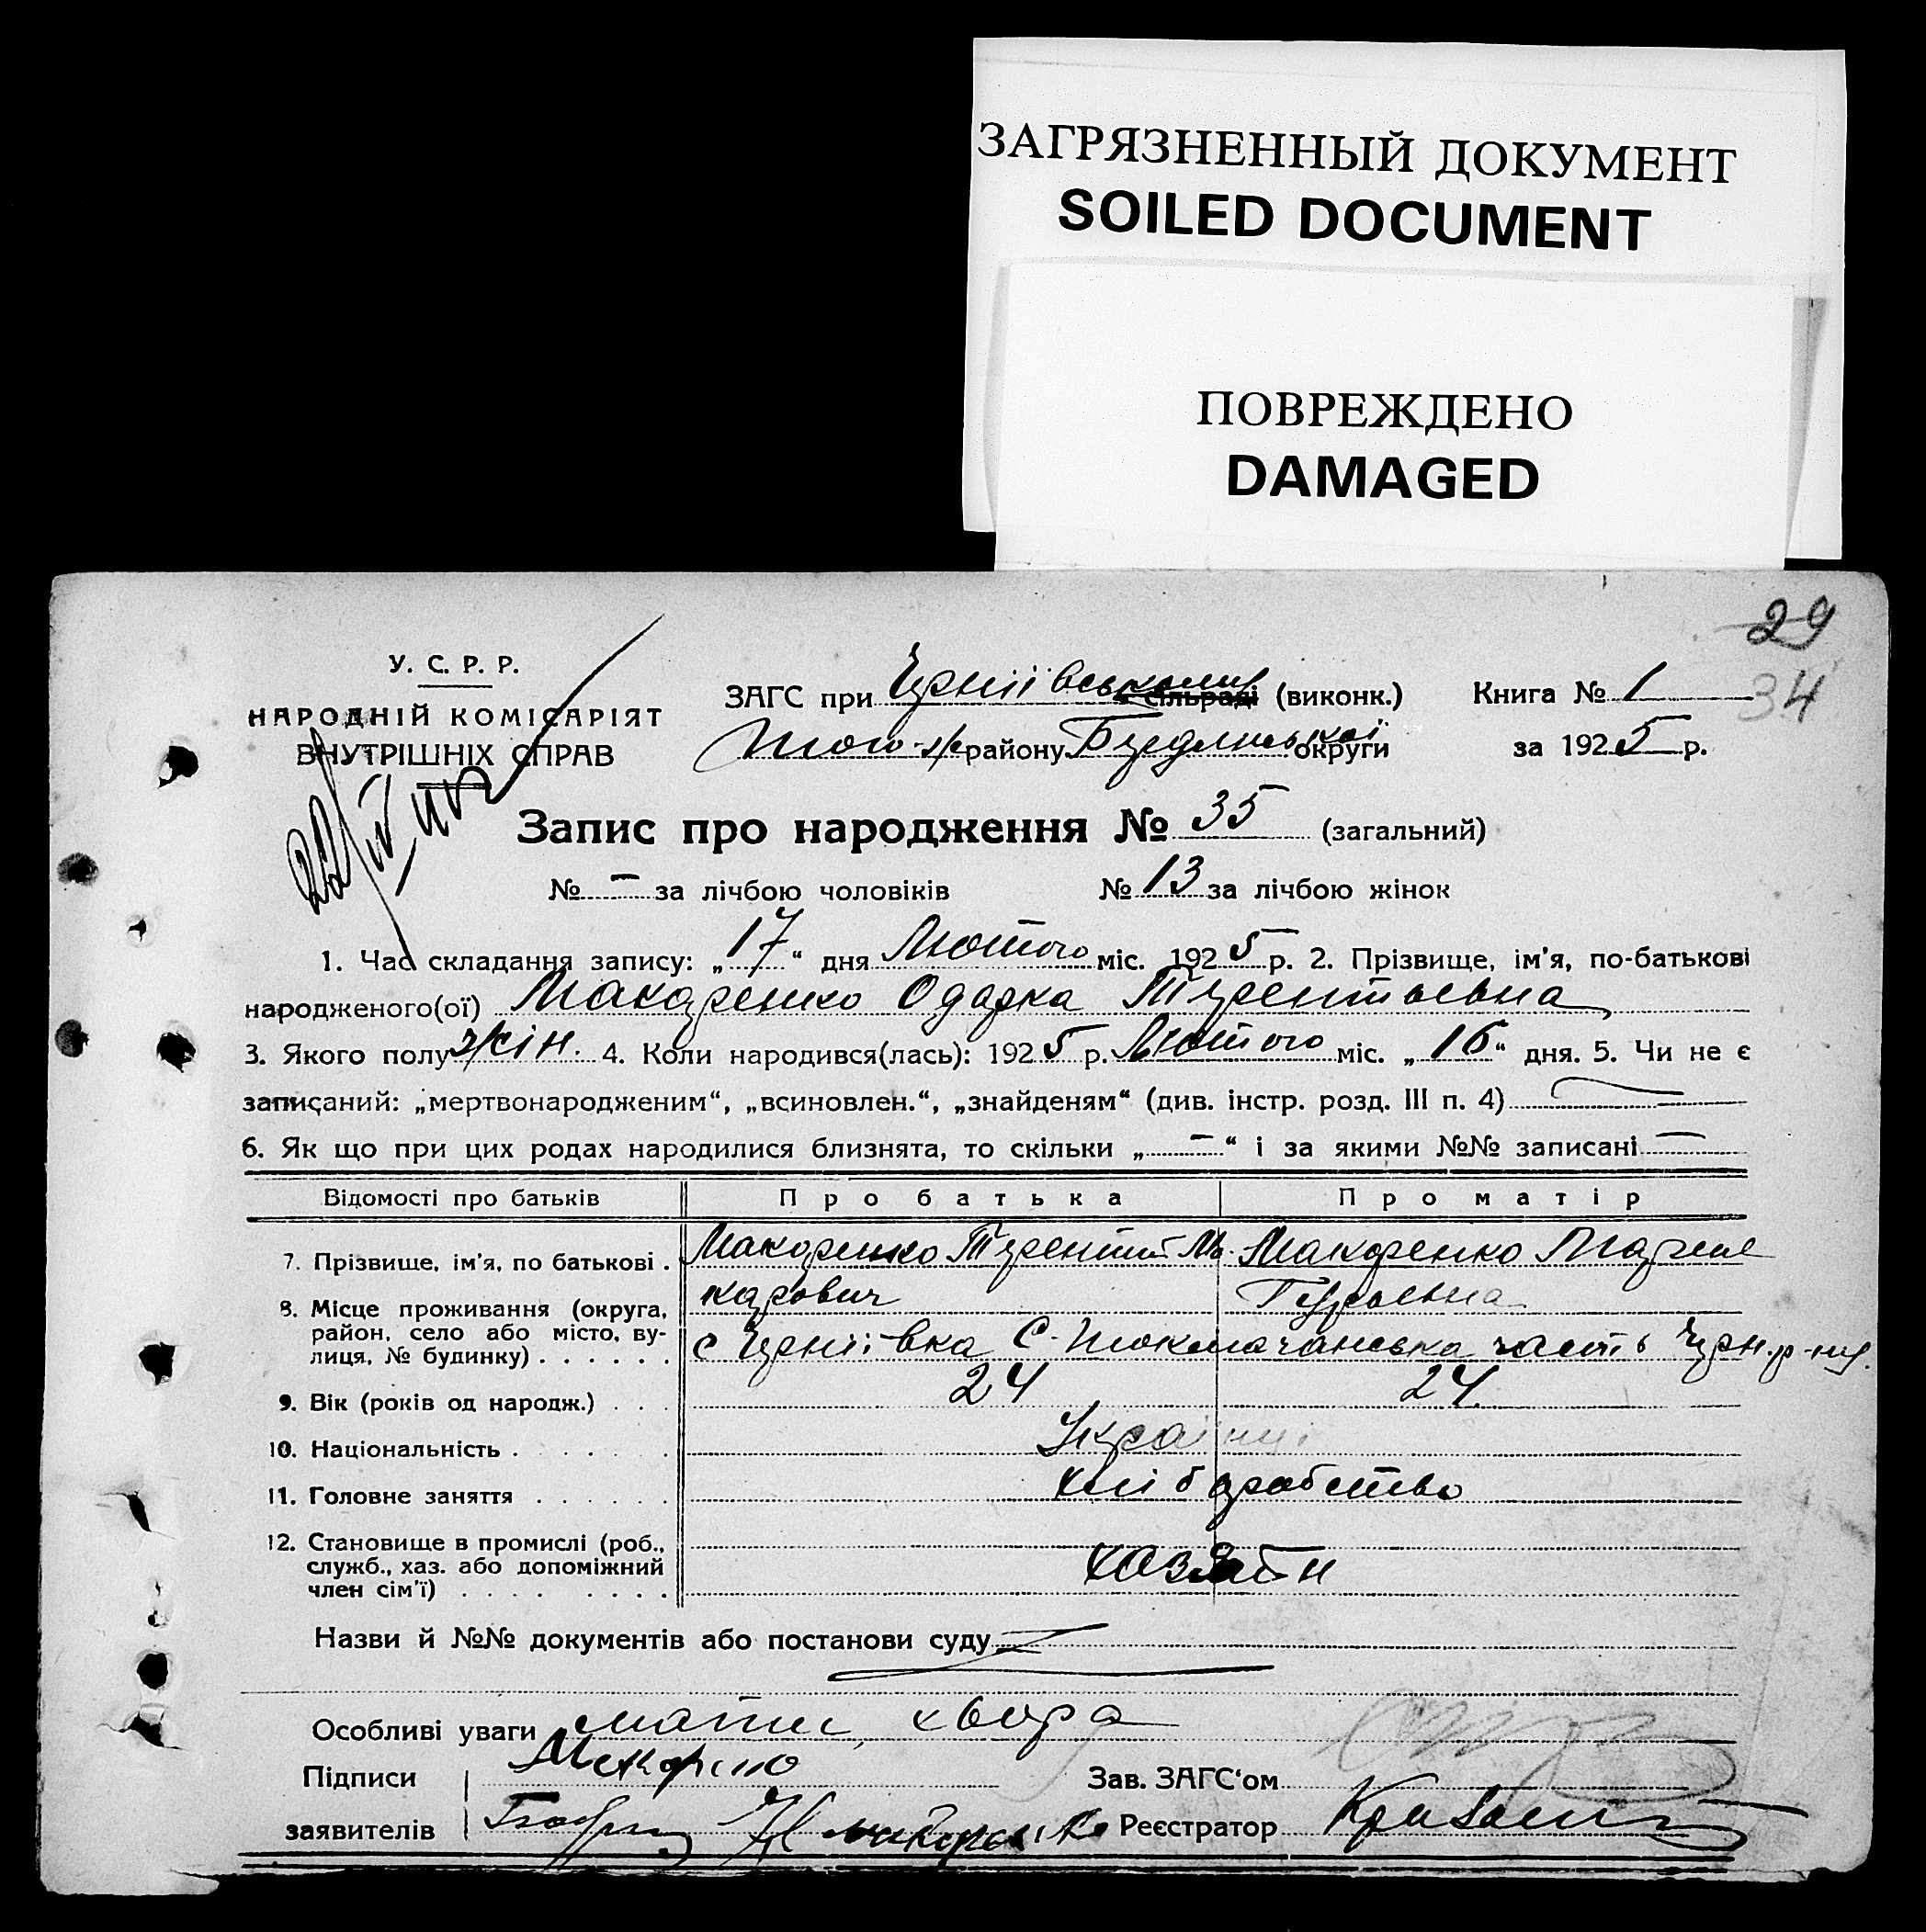 ЗАГРЯЗНЕННЫЙ ДОКУМЕНТ
SOILED DOCUMENT
ПОВРЕЖДЕНО
DAMAGED
29
34
У. С. Р. Р.
НАРОДНІЙ КОМІСАРІЯТ
ВНУТРІШНІХ СПРАВ
ЗАГС при Черніївському сільраді (виконк.) Книга № 1
того-ж району Бердянської округи за 1925 р.
Запис про народження № 35 (загальний)
№ – за лічбою чоловіків № 13 за лічбою жінок
1. Час складання запису: „17“ дня Лютого міс. 1925 р. 2. Прізвище, ім'я, по-батькові
народженого(ої) Макаренко Одарка Терентьевна
3. Якого полу жін. 4. Коли народився(лась): 1925 р. Лютого міс. „16“ дня. 5. Чи не є
записаний: „мертвонародженим“, „всиновлен.“, „знайденям“ (див. інстр. розд. III п. 4) —
6. Як що при цих родах народилися близнята, то скільки „–“ і за якими №№ записані —
Відомості про батьків Про батька Про матір
7. Прізвище, ім'я, по батькові . Макаренко Терентий Ма- Макаренко Мария
карович
8. Місце проживання (округа, район, село або місто, вулиця, № будинку) . . . . . . с Черніівка С-Токмачанська часть Черн. р-ну.
9. Вік (років од народж.) . . . 24 24
10. Національність . . . . . . Українці
11. Головне заняття . . . . . . хліборобство
12. Становище в промислі (роб., служб., хаз. або допоміжний член сім'ї) . . . . . . . . хазяїн
Назви й №№ документів або постанови суду —
Особливі уваги мати, хвора
Підписи Макаренко Зав. ЗАГС'ом
заявителів Макаренко Реєстратор